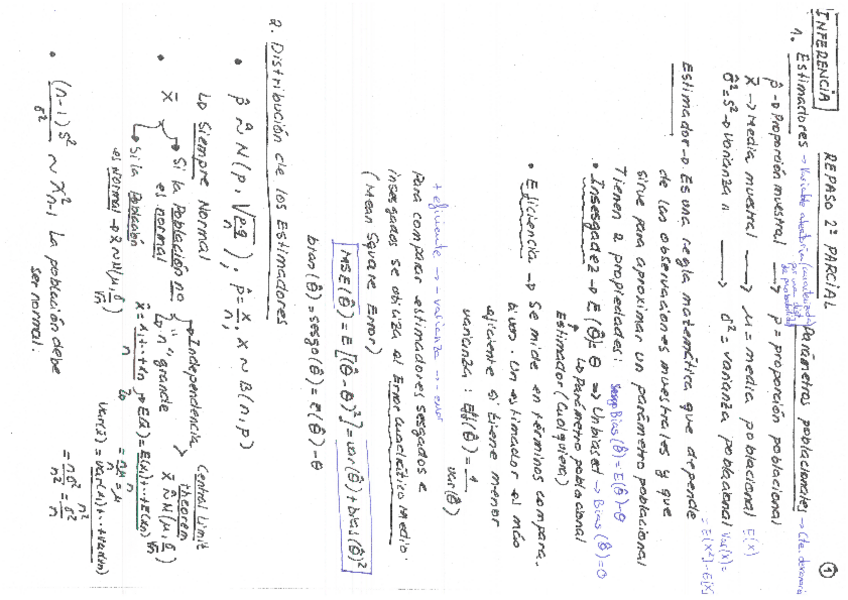 INFERENCIA REPASO 2º PARCIAL ①
1. Estimadores → Variable aleatoria (caracterizada por una distr. de probabilidad) Parámetros poblacionales → Cte. 
p̂ → Proporción muestral → p = proporción poblacional
x̄ → Media muestral → μ = media poblacional E(x)
σ̂² = s² → Varianza " → σ² = varianza poblacional Var(x) =
= E[X²] - E[X]
Estimador → Es una regla matemática que depende
de las observaciones muestrales y que
sirve para aproximar un parámetro poblacional
Tienen 2 propiedades: Sesgo Bias(θ̂) = E(θ̂) - θ
• Insesgadez → E(θ̂) = θ ⇒ Unbiased → Bias(θ̂) = 0
↳ Parámetro poblacional
Estimador (Cualquiera)
• Eficiencia → Se mide en términos compara.
tivos. Un estimador es más
eficiente si tiene menor
varianza: Eff(θ̂) = 1/var(θ̂)
+ eficiente → - varianza → - error
Para comparar estimadores sesgados e
insesgados se utiliza el Error Cuadrático Medio.
(Mean Square Error)
MSE(θ̂) = E[(θ̂-θ)²] = var(θ̂) + bias(θ̂)²
bias(θ̂) = sesgo(θ̂) = E(θ̂) - θ
2. Distribución de los Estimadores
• p̂ ~ N(p, √(p·q/n)), p̂ = x/n, x ~ B(n, p)
↳ Siempre Normal
• x̄ → Si la Población no es normal → Independencia
↳ n "grande" Central Limit theorem x̄ ~ N(μ, σ/√n)
↳ Si la Población
es Normal → x̄ ~ N(μ, σ/√n)
x̄ = x₁+...+xn/n → E(x̄) = E(x₁)+...+E(xn)/n
= nμ/n = μ
Var(x̄) = var(x₁)+...+var(xn)/n²
= nσ²/n² = σ²/n
• (n-1)S²/σ² ~ χ²n-1 La población debe
ser normal.